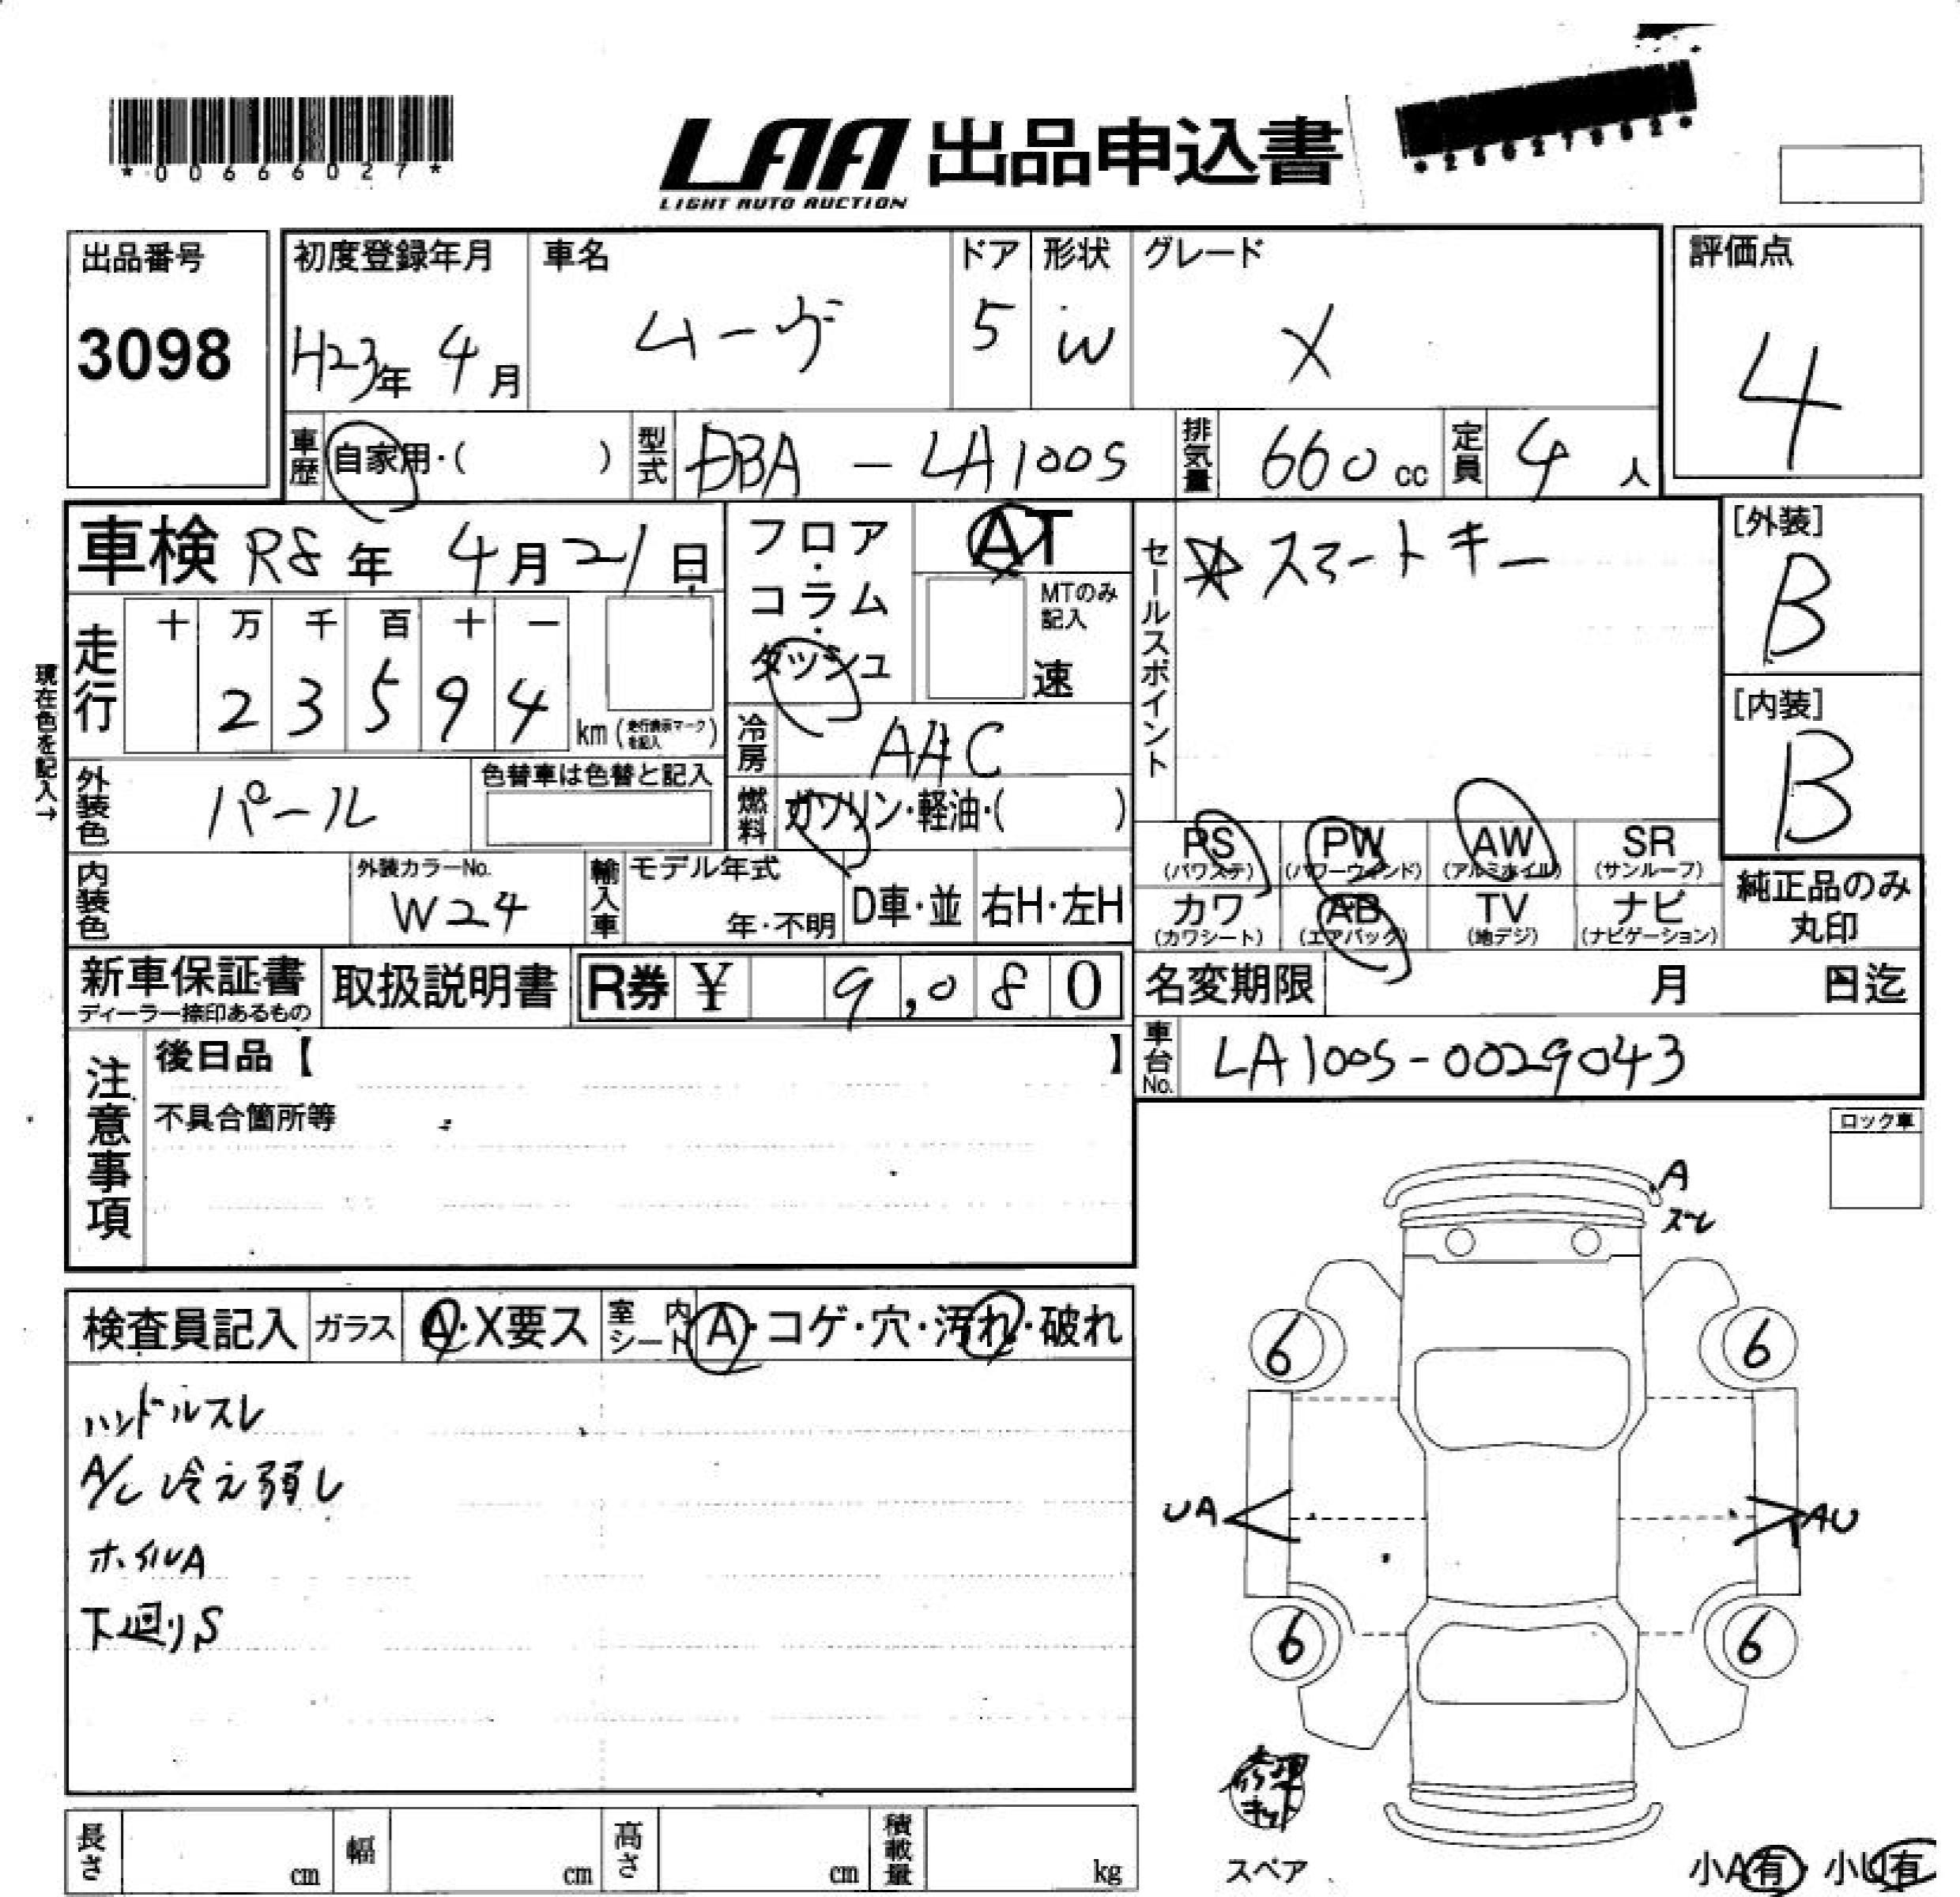 *00666027*
LAA 出品申込書
LIGHT AUTO AUCTION
出品番号
3098
初度登録年月
H23年 4月
車名
ムーヴ
ドア
5
形状
W
グレード
X
評価点
4
車歴 自家用・( )
型式 DBA - LA100S
排気量 660 cc
定員 4 人
車検 R8年 4月21日
フロア・コラム・ダッシュ
AT
MTのみ記入
速
セールスポイント
スマートキー
[外装]
B
[内装]
B
現在色を記入→
走行
十 万 千 百 十 一
2 3 5 9 4
km (走行表示マークを記入)
冷房 AAC
燃料 ガソリン・軽油・( )
外装色 パール
色替車は色替と記入
内装色
外装カラーNo.
W24
輸入車
モデル年式
年・不明
D車・並
右H・左H
PS
(パワステ)
PW
(パワーウィンド)
AW
(アルミホイル)
SR
(サンルーフ)
カワ
(カワシート)
AB
(エアバック)
TV
(地デジ)
ナビ
(ナビゲーション)
純正品のみ
丸印
新車保証書
ディーラー捺印あるもの
取扱説明書
R券 ¥ 9,080
名変期限 月 日迄
車台No. LA100S-0029043
注意事項
後日品【 】
不具合箇所等
ロック車
検査員記入
ガラス A・X要ス
室内シート A・コゲ・穴・汚れ・破れ
ハンドルスレ
A/C 冷え弱し
ホイルA
下廻りS
A
ズレ
6 6
UA AU
6 6
修理
キット
スペア
小A有・小U有
長さ cm
幅 cm
高さ cm
積載量 kg